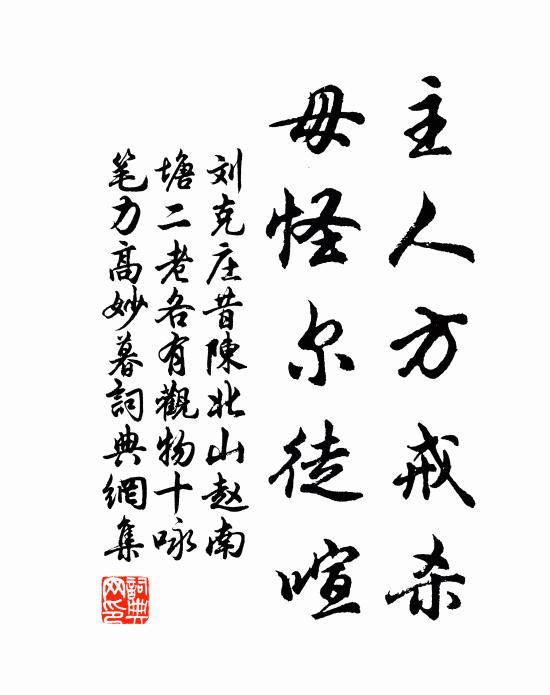 主人方戒杀
毋怪尔徒喧
刘克庄昔陳北山赵南
塘二老各有觀物十咏
笔力高妙暮詞典網集
詞典网印